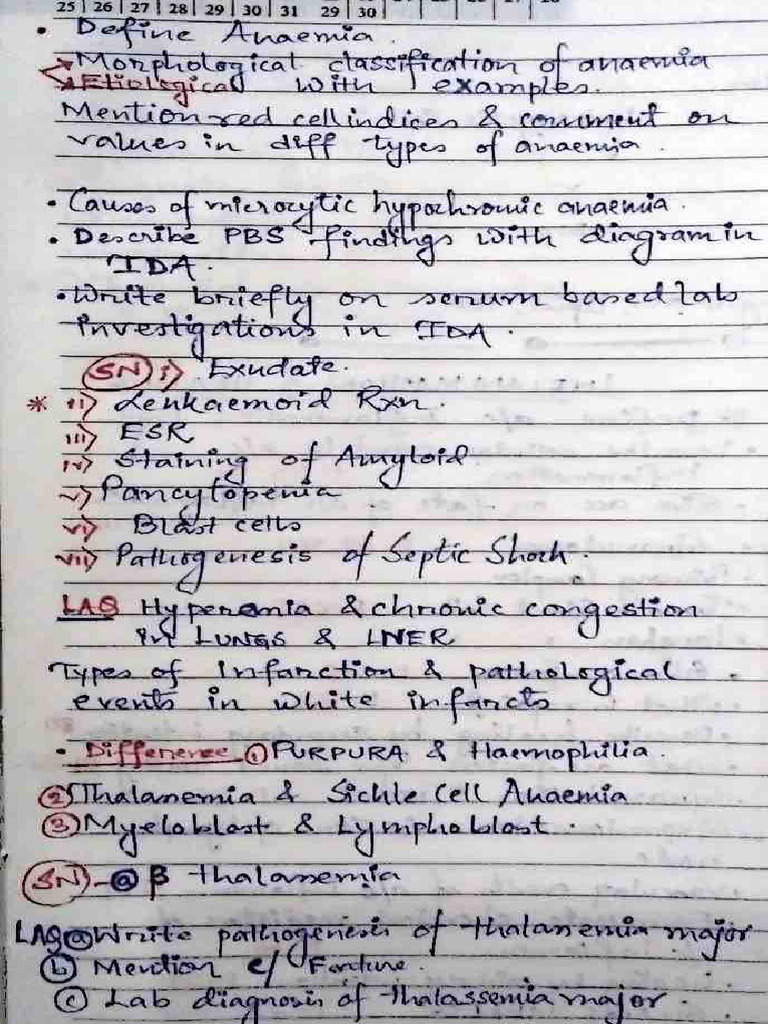 25 26 27 28 29 30 31 29 30
• Define Anaemia.
Morphological classification of anaemia
Etiological with examples.
Mention red cell indices & comment on
values in diff types of anaemia.
• Causes of microcytic hypochromic anaemia.
• Describe PBS findings with diagram in
IDA.
• Write briefly on serum based lab
investigations in IDA.
SN i) Exudate.
* ii) Leukaemoid Rxn.
iii) ESR
iv) Staining of Amyloid
v) Pancytopenia
vi) Blast cells
vii) Pathogenesis of Septic Shock.
LAQ Hyperemia & chronic congestion
in LUNGS & LIVER
Types of Infarction & pathological
events in white infarcts
• Difference ① PURPURA & Haemophilia.
② Thalasemia & Sickle Cell Anaemia
③ Myeloblast & Lymphoblast.
SN - ⓐ β thalasemia
LAQ ⓐ Write pathogenesis of thalasemia major
ⓑ Mention c/ Feature.
ⓒ Lab diagnosis of thalassemia major.